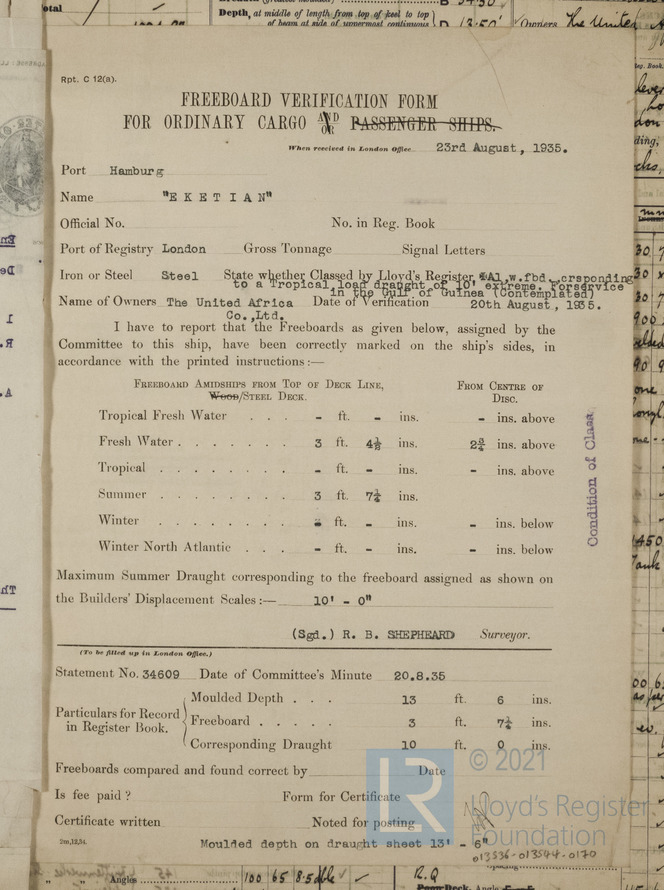 Rpt. C 12(a).
FREEBOARD VERIFICATION FORM
FOR ORDINARY CARGO AND OR PASSENGER SHIPS.
When received in London Office 23rd August, 1935.
Port Hamburg
Name "E K E T I A N"
Official No. No. in Reg. Book
Port of Registry London Gross Tonnage Signal Letters
Iron or Steel Steel State whether Classed by Lloyd's Register A1, w.fbd. crsponding
to a Tropical load draught of 10' extreme. Forservice
in the Gulf of Guinea (Contemplated)
Name of Owners The United Africa Date of Verification 20th August, 1935.
Co.,Ltd.
I have to report that the Freeboards as given below, assigned by the
Committee to this ship, have been correctly marked on the ship's sides, in
accordance with the printed instructions:—
Freeboard Amidships from Top of Deck Line, From Centre of
Wood/Steel Deck. Disc.
Tropical Fresh Water . . . - ft. - ins. - ins. above
Fresh Water . . . . . . 3 ft. 4½ ins. 2¾ ins. above
Tropical . . . . . . . - ft. - ins. - ins. above
Summer . . . . . . . 3 ft. 7¼ ins.
Winter . . . . . . . - ft. - ins. - ins. below
Winter North Atlantic . . . - ft. - ins. - ins. below
Condition of Class
Maximum Summer Draught corresponding to the freeboard assigned as shown on
the Builders' Displacement Scales:— 10' - 0"
(Sgd.) R. B. SHEPHEARD Surveyor.
(To be filled up in London Office.)
Statement No. 34609 Date of Committee's Minute 20.8.35
Particulars for Record in Register Book.
Moulded Depth . . . 13 ft. 6 ins.
Freeboard . . . . . 3 ft. 7¼ ins.
Corresponding Draught 10 ft. 0 ins.
Freeboards compared and found correct by Date
Is fee paid ? Form for Certificate
Certificate written Noted for posting
2m,12,34.
Moulded depth on draught sheet 13' - 6"
013536-013544-0170
LR
© 2021
Lloyd's Register
Foundation
Depth, at middle of length from top of keel to top
of beam at side of uppermost continuous
D 13.50'
Owners The United
Angles
100 65 8.5